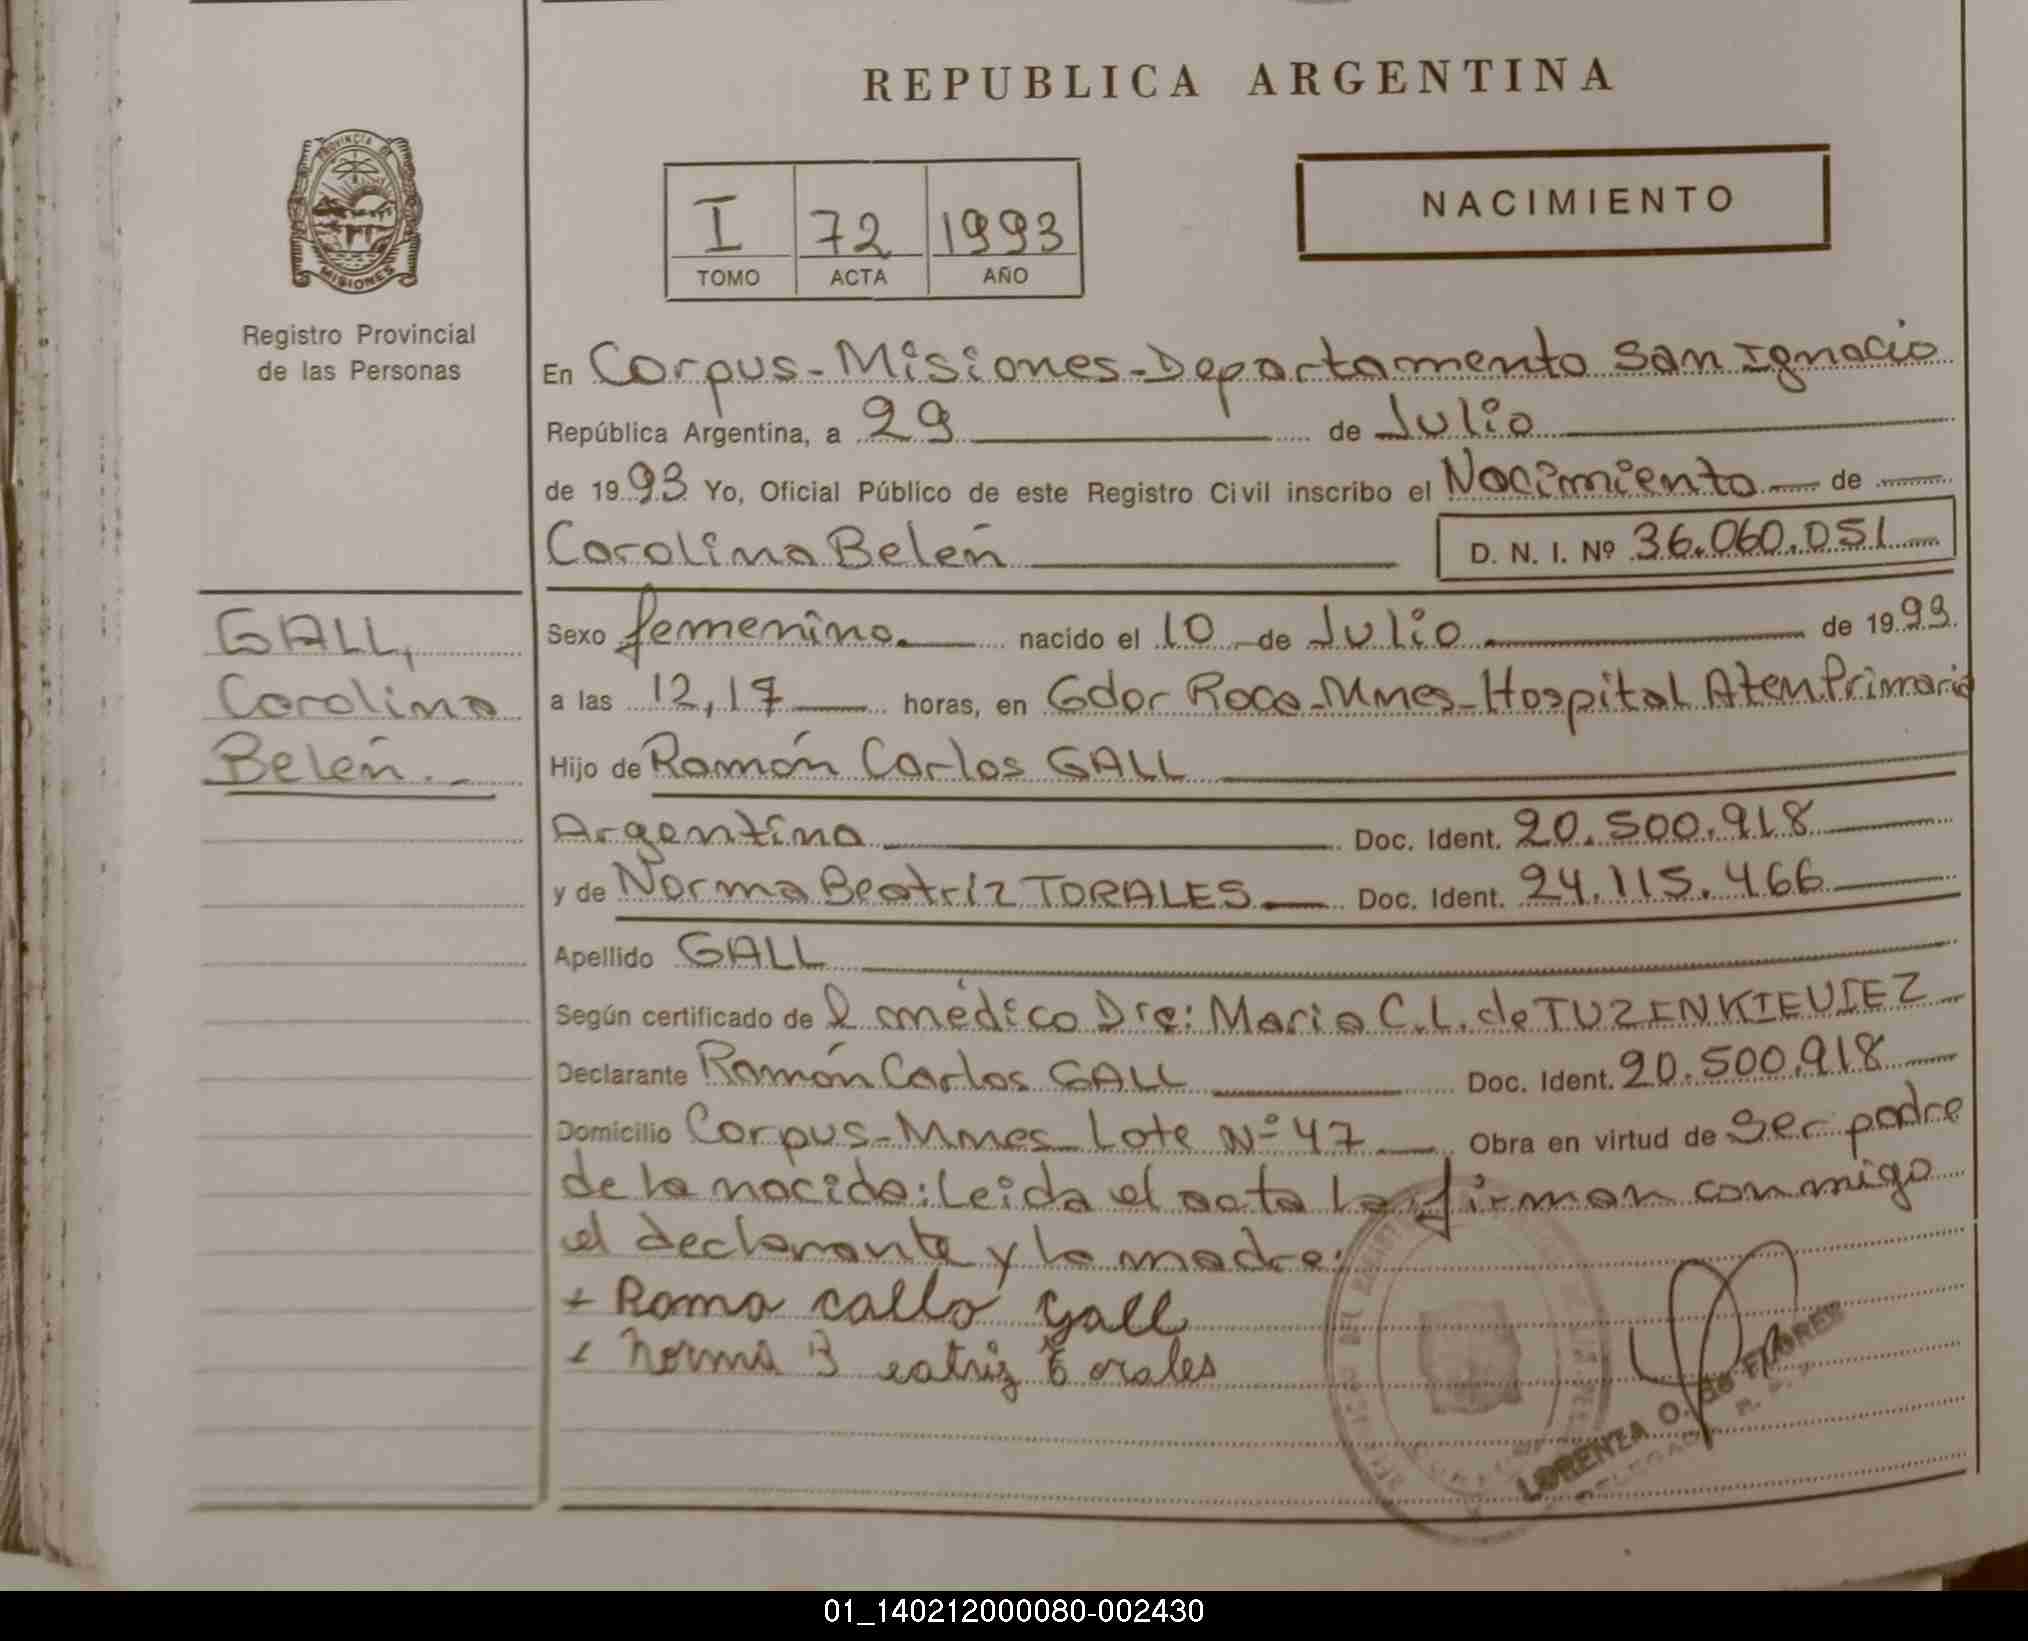 REPUBLICA ARGENTINA
PROVINCIA DE
MISIONES
Registro Provincial
de las Personas
I 72 1993
TOMO ACTA AÑO
NACIMIENTO
En Corpus-Misiones-Departamento San Ignacio
República Argentina, a 29 de Julio
de 1993 Yo, Oficial Público de este Registro Civil inscribo el Nacimiento de
Carolina Belén D. N. I. Nº 36.060.051
GALL,
Carolina
Belén.-
Sexo femenino. nacido el 10 de Julio de 1993.
a las 12,17 horas, en Gdor Roca-Mnes-Hospital Aten Primaria
Hijo de Ramón Carlos GALL
Argentina Doc. Ident. 20.500.918
y de Norma Beatríz TORALES Doc. Ident. 24.115.466
Apellido GALL
Según certificado de l médico Dra: Maria C.L. de TUZENKIEVIEZ
Declarante Ramón Carlos GALL Doc. Ident. 20.500.918
Domicilio Corpus-Mnes-Lote Nº 47 Obra en virtud de Ser padre
de la nacida: Leida el acta la firman conmigo
el declarante y la madre:
+ Roma callo Gall
+ Norma B eatriz t orales
LORENZA O. de FLORES
01_140212000080-002430